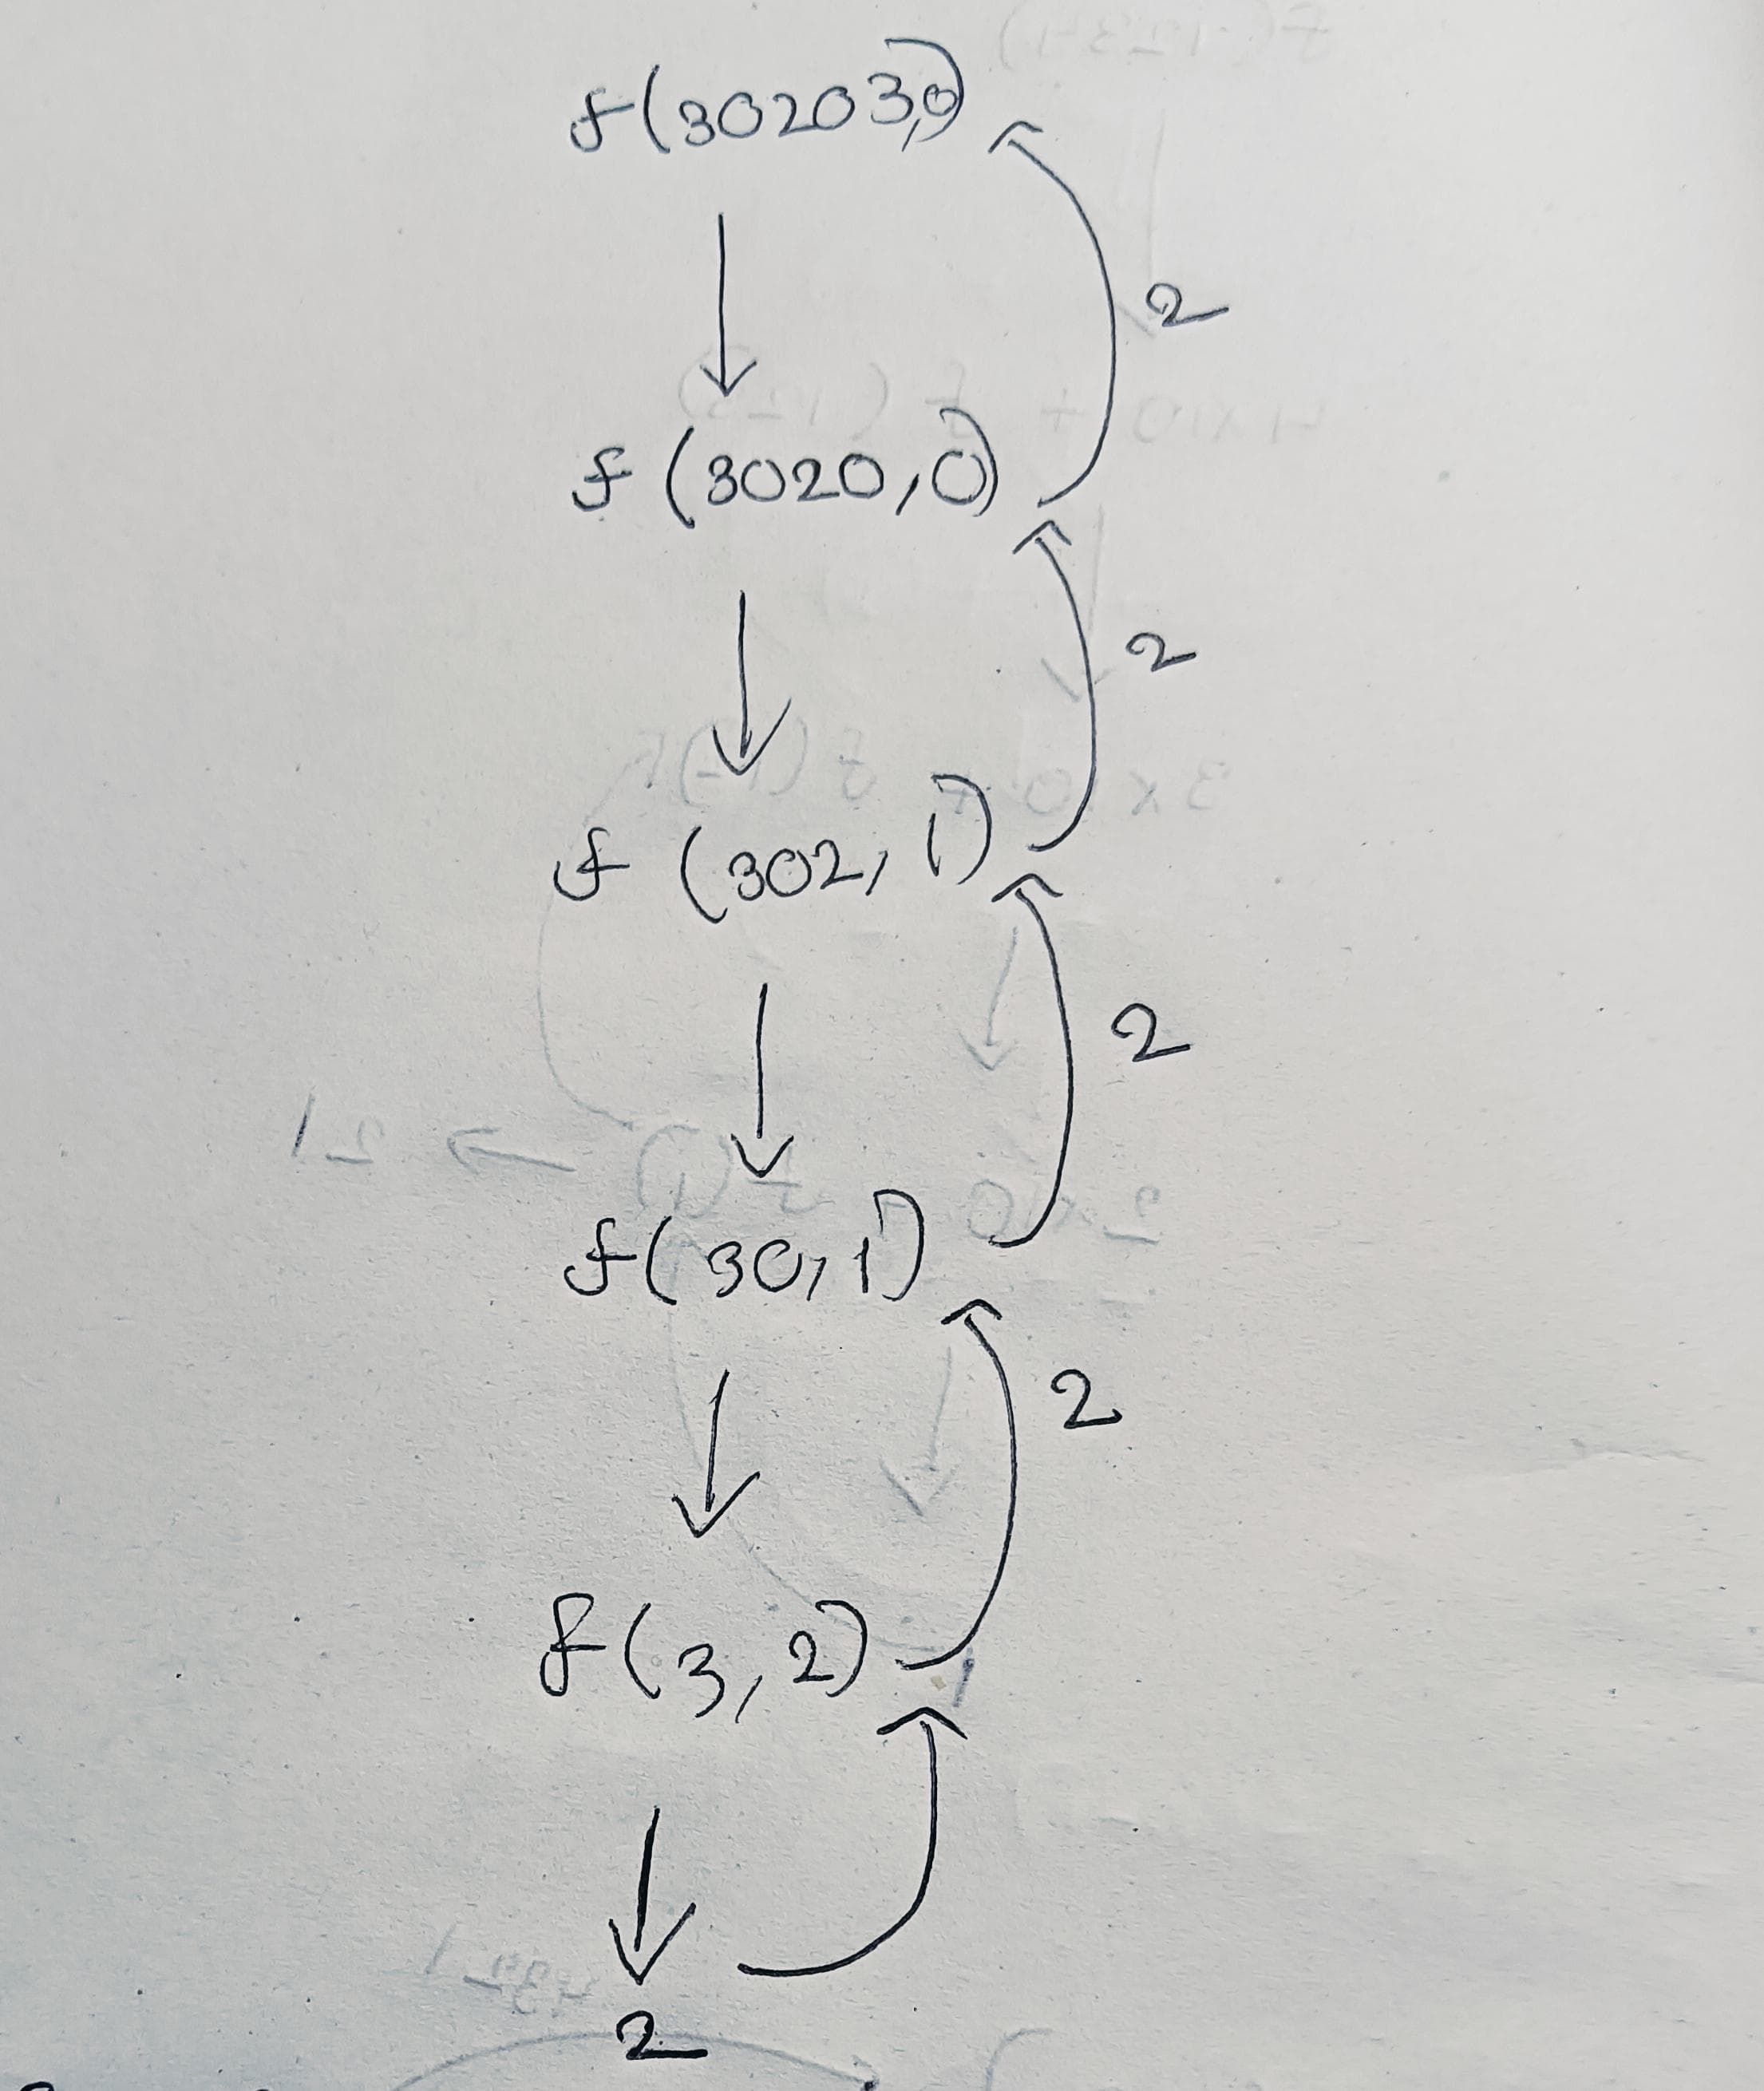 f(30203,0)
2
f(3020,0)
2
f(302,1)
2
f(30,1)
2
f(3,2)
2